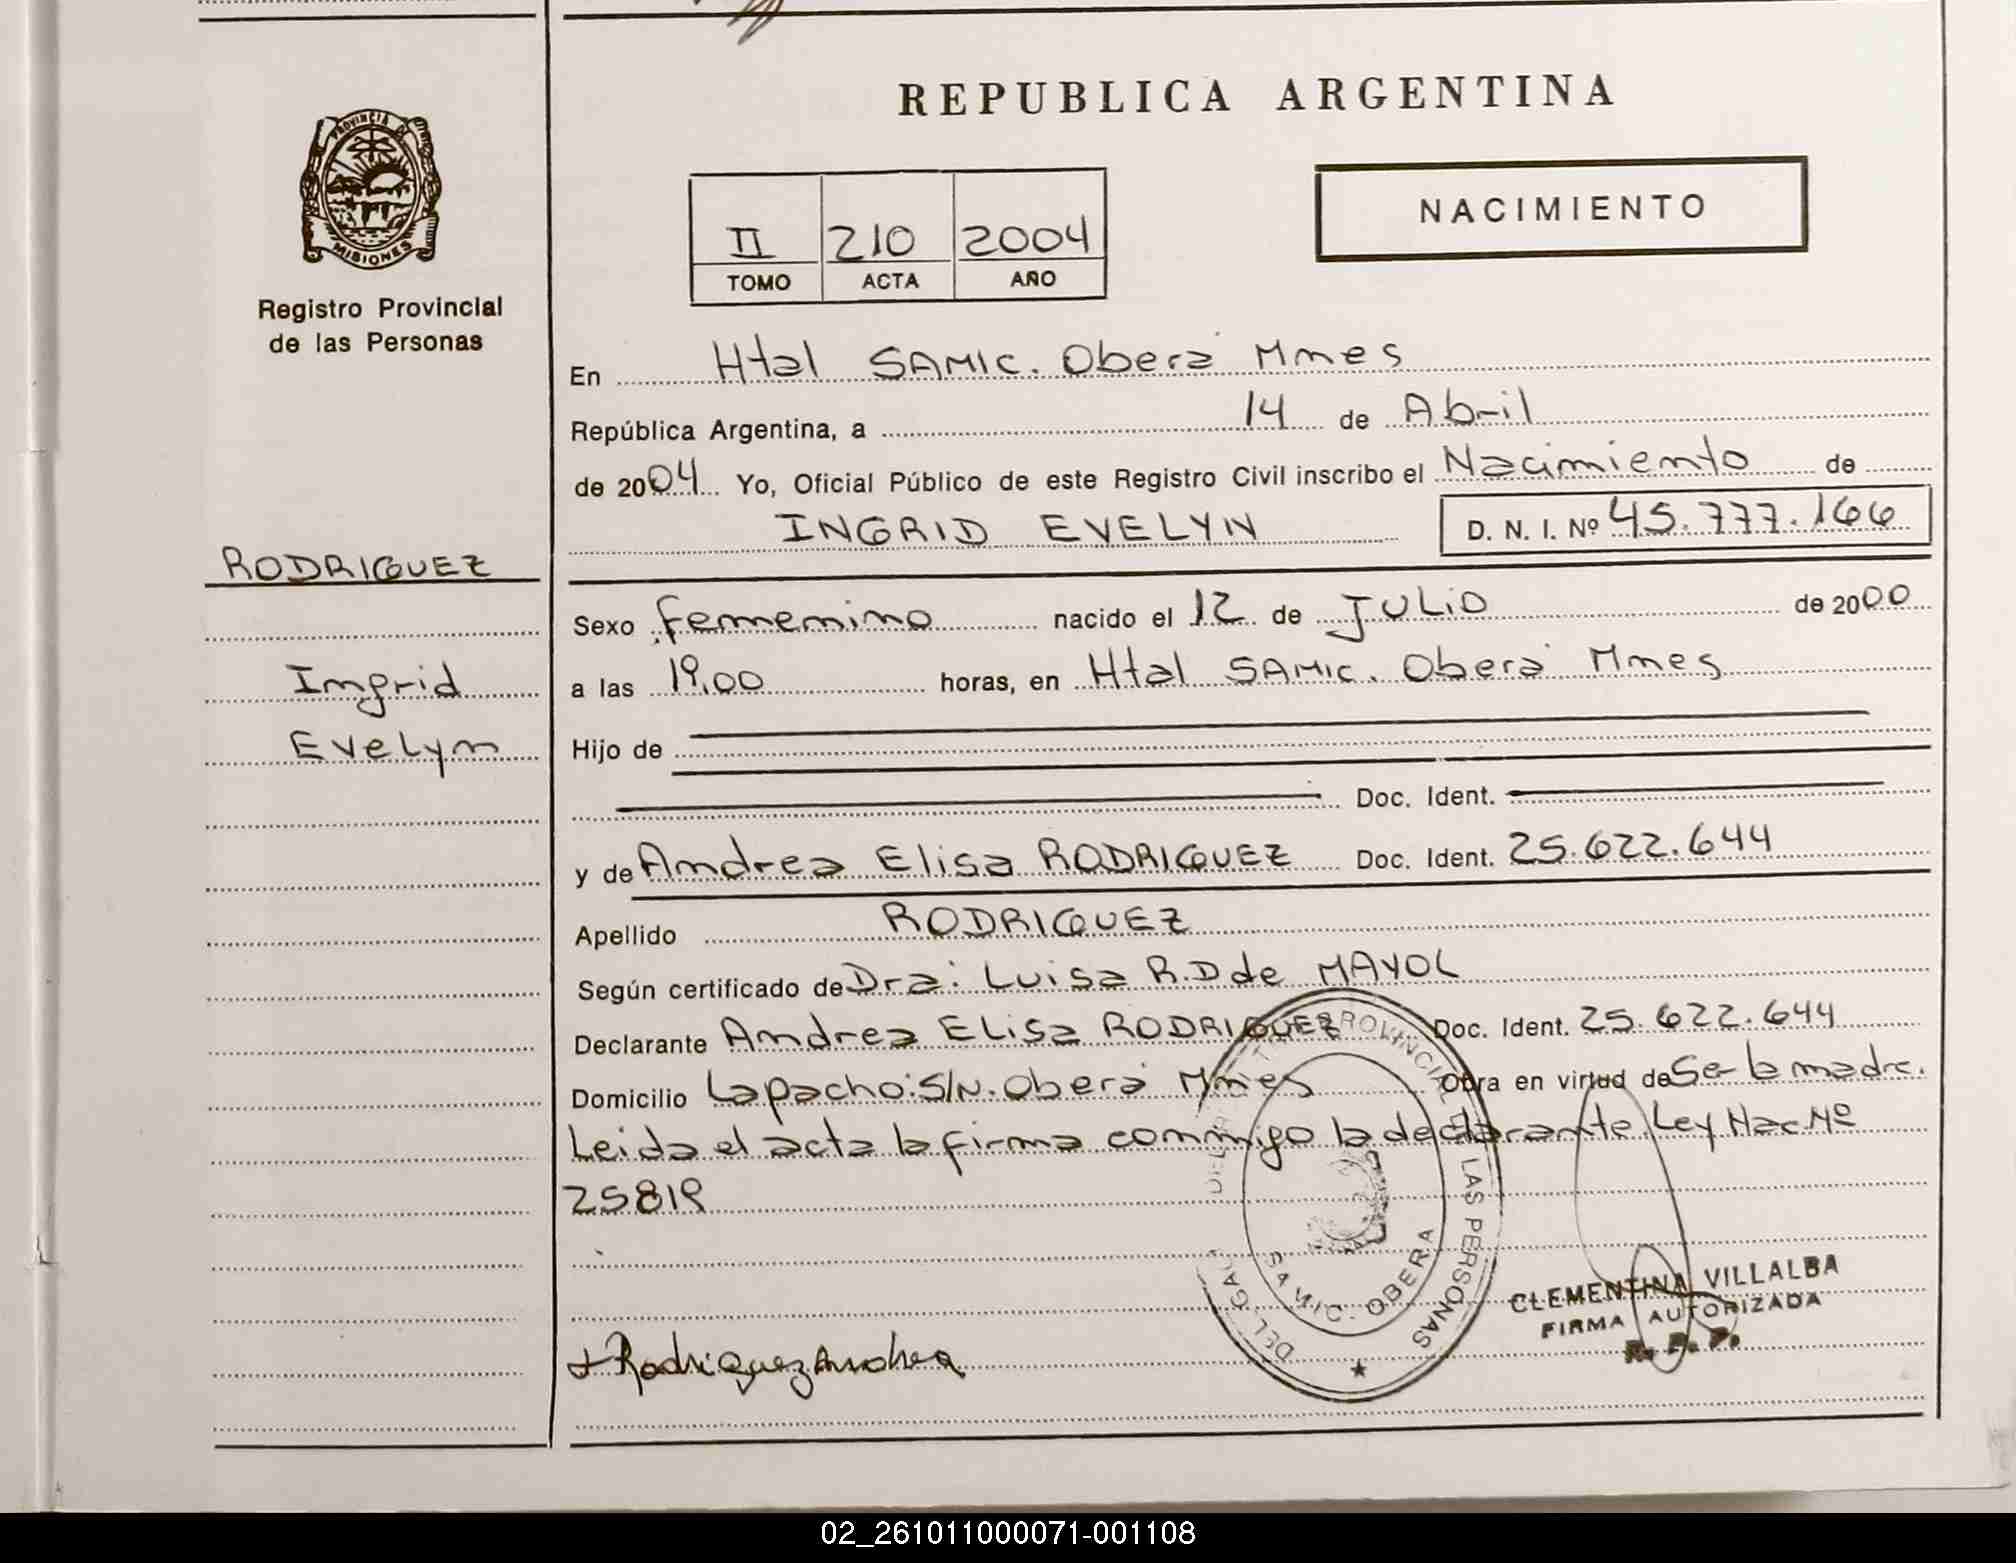 REPUBLICA ARGENTINA
PROVINCIA DE
MISIONES
Registro Provincial
de las Personas
NACIMIENTO
II 210 2004
TOMO ACTA AÑO
En Htal SAMIC. Oberá Mnes
República Argentina, a 14 de Abril
de 2004 Yo, Oficial Público de este Registro Civil inscribo el Nacimiento de
INGRID EVELYN D. N. I. Nº 45.777.166
RODRIGUEZ
Ingrid
Evelyn
Sexo femenino nacido el 12 de JULIO de 2000
a las 19,00 horas, en Htal SAMIC. Oberá Mnes
Hijo de
Doc. Ident.
y de Andrea Elisa RODRIGUEZ Doc. Ident. 25.622.644
Apellido RODRIGUEZ
Según certificado de Dra: Luisa R.D de MAYOL
Declarante Andrea ELisa RODRIGUEZ Doc. Ident. 25.622.644
Domicilio Lapacho S/N. Oberá Mnes Obra en virtud de Ser la madre.
Leida el acta la firma conmigo la declarante. Ley Nac Nº
25819
PROVINCIAL DE LAS PERSONAS
SAMIC. OBERA
CLEMENTINA VILLALBA
FIRMA AUTORIZADA
R. P. P.
Rodriguez Andrea
02_261011000071-001108